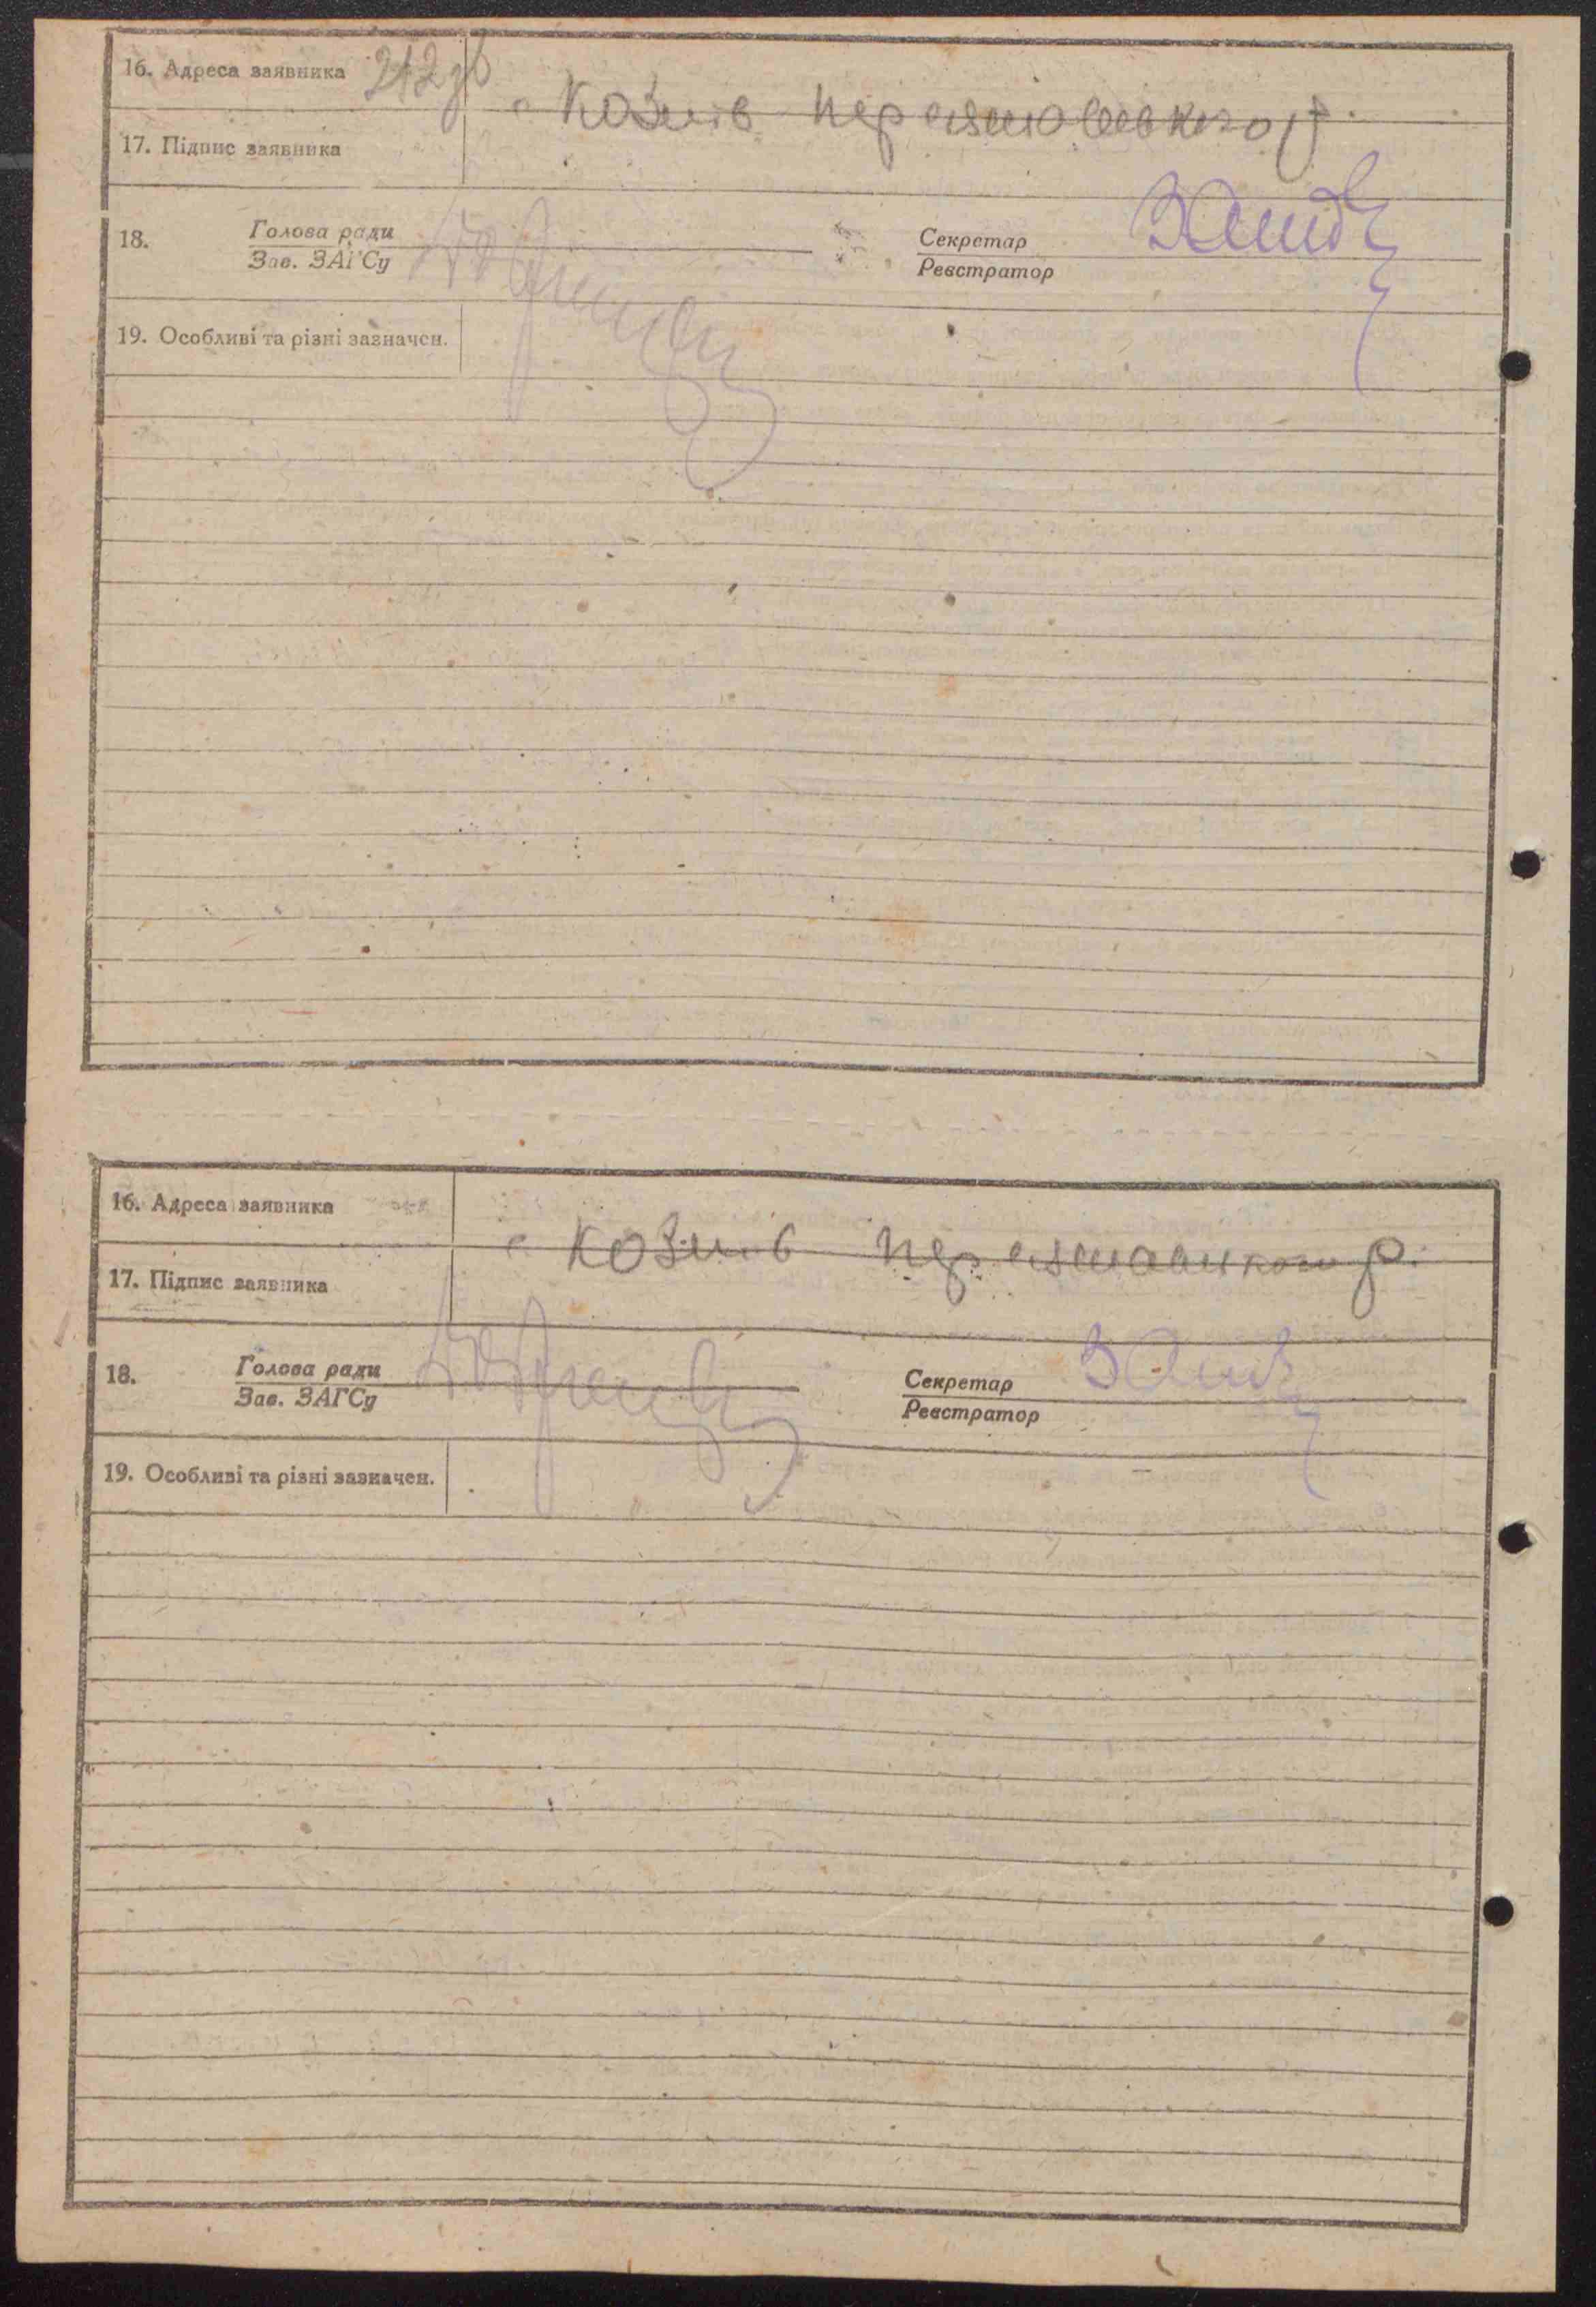 16. Адреса заявника 212 зв
с Козлів Переяславського р.
17. Підпис заявника
18. Голова ради
Зав. ЗАГСу
Секретар
Реєстратор
19. Особливі та різні зазначен.
16. Адреса заявника
с Козлів Переяславського р.
17. Підпис заявника
18. Голова ради
Зав. ЗАГСу
Секретар
Реєстратор
19. Особливі та різні зазначен.